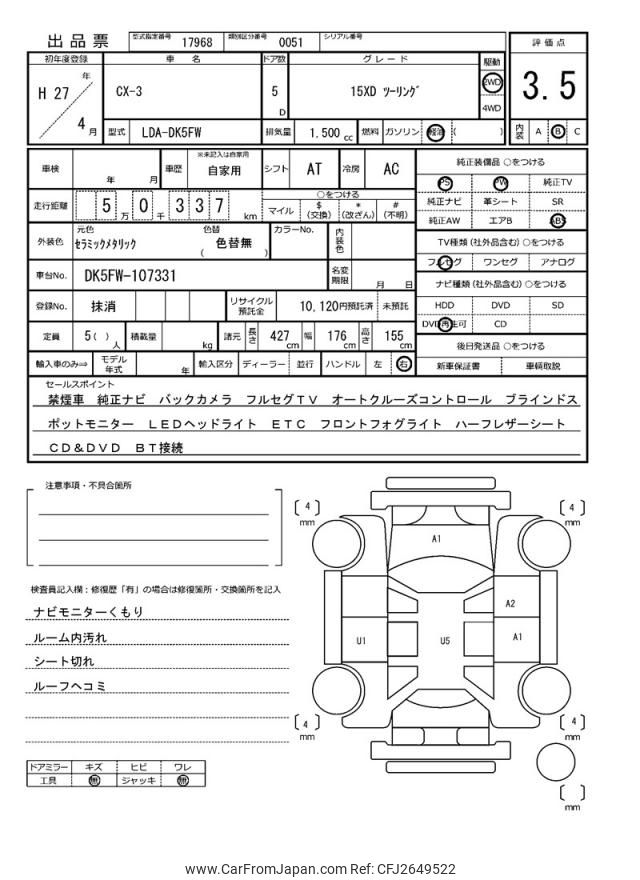 出品票 型式指定番号 17968 類別区分番号 0051 シリアル番号
評価点
3.5
内装 A B C
初年度登録 車名 ドア数 グレード 駆動
H 27 年 4 月 CX-3 5 D 15XD ﾂｰﾘﾝｸﾞ 2WD 4WD
型式 LDA-DK5FW 排気量 1,500 cc 燃料 ガソリン 軽油 ( )
車検 年 月 車歴 ※未記入は自家用 自家用 シフト AT 冷房 AC
走行距離 5 万 0 千 3 3 7 km ○をつける マイル $ (交換) * (改ざん) # (不明)
外装色 元色 ｾﾗﾐｯｸﾒﾀﾘｯｸ 色替 ( 色替無 ) カラーNo. 内装色
車台No. DK5FW-107331 名変期限 月 日
登録No. 抹消 リサイクル預託金 10,120円預託済 未預託
定員 5( ) 人 積載量 kg 諸元 長さ 427 cm 幅 176 cm 高さ 155 cm
輸入車のみ⇒ モデル年式 年 輸入区分 ディーラー 並行 ハンドル 左 右
純正装備品 ○をつける
PS PW 純正TV
純正ナビ 革シート SR
純正AW エアB ABS
TV種類 (社外品含む) ○をつける
フルセグ ワンセグ アナログ
ナビ種類 (社外品含む) ○をつける
HDD DVD SD
DVD再生可 CD
後日発送品 ○をつける
新車保証書 車輌取説
セールスポイント
禁煙車 純正ナビ バックカメラ フルセグTV オートクルーズコントロール ブラインドス
ポットモニター LEDヘッドライト ETC フロントフォグライト ハーフレザーシート
CD&DVD BT接続
注意事項・不具合箇所
検査員記入欄：修復歴「有」の場合は修復箇所・交換箇所を記入
ナビモニターくもり
ルーム内汚れ
シート切れ
ルーフヘコミ
ドアミラー キズ ヒビ ワレ
工具 無 ジャッキ 無
[ 4 ] mm
[ 4 ] mm
A1
A2
U1
U5
A1
[ 4 ] mm
[ 4 ] mm
[ ] mm
www.CarFromJapan.com Ref: CFJ2649522